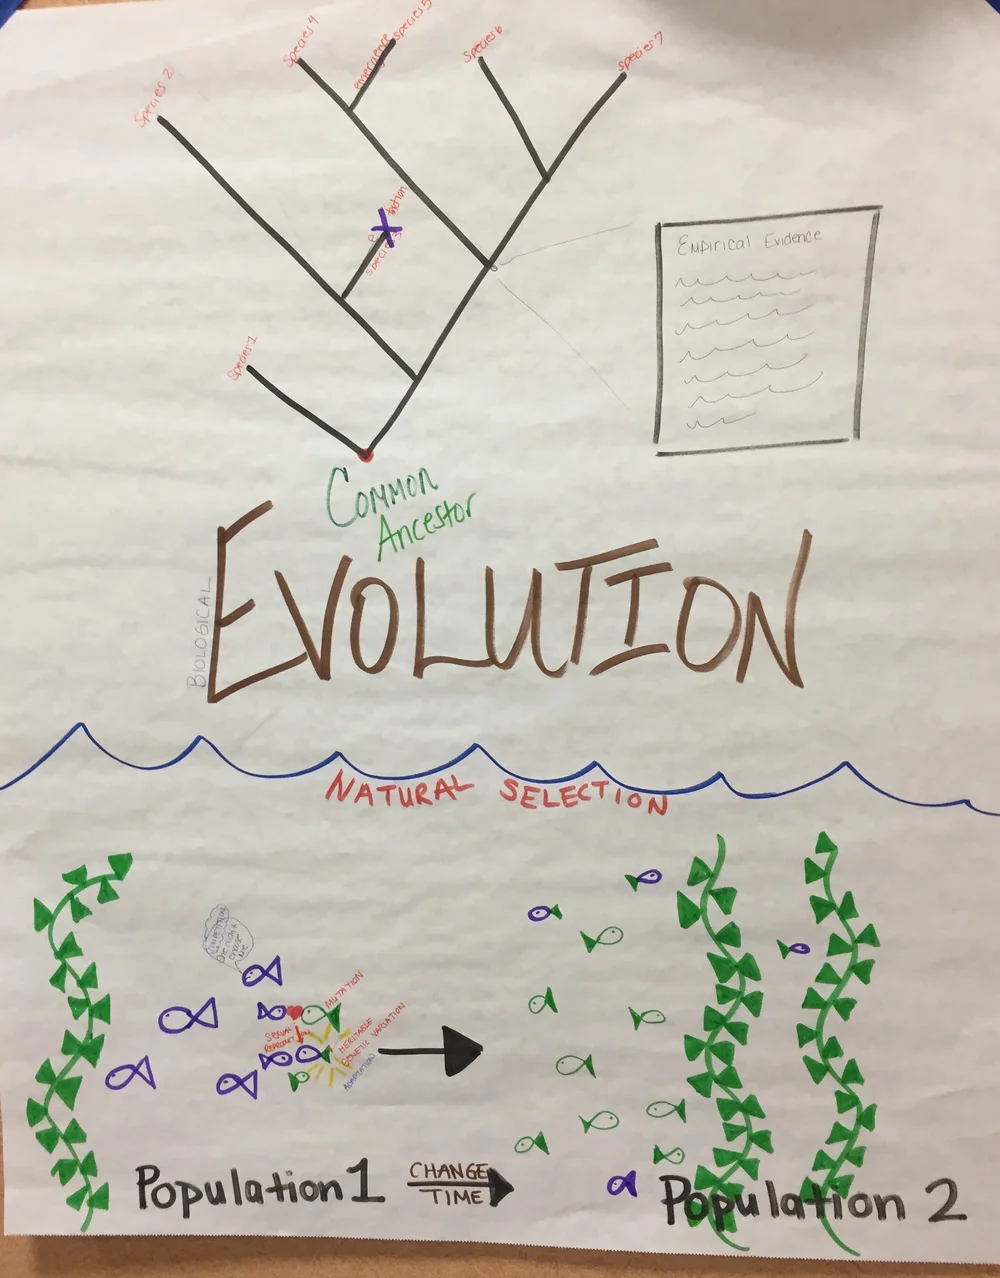 Species 4
emergence
Species 5
Species 6
Species 7
Species 2
species 3
Species 1
Empirical Evidence
Common
Ancestor
BIOLOGICAL
EVOLUTION
NATURAL SELECTION
COMPETITION
MUTATION
SEXUAL
HERITABLE
GENETIC VARIATION
ADAPTATION
Population 1
CHANGE
TIME
Population 2